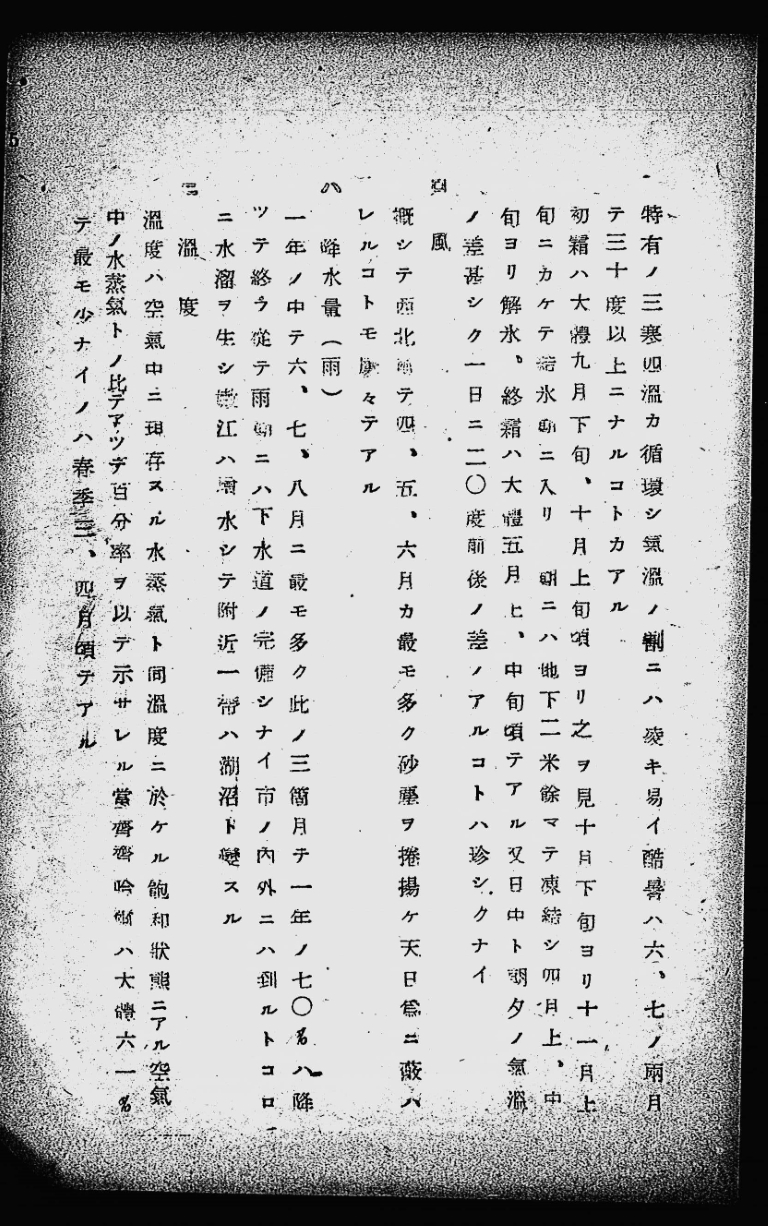 特有ノ三寒四溫カ循環シ氣溫ノ割ニハ凌キ易イ酷暑ハ六、七ノ兩月
テ三十度以上ニナルコトカアル
初霜ハ大體九月下旬、十月上旬頃ヨリ之ヲ見十月下旬ヨリ十一月上
旬ニカケテ結氷期ニ入リ 期ニハ地下二米餘マテ凍結シ四月上、中
旬ヨリ解氷、終霜ハ大體五月上、中旬頃テアル又日中ト朝夕ノ氣溫
ノ差甚シク一日ニ二〇度前後ノ差ノアルコトハ珍シクナイ
風
概シテ西北風テ四、五、六月カ最モ多ク砂塵ヲ捲揚ケ天日爲ニ蔽ハ
レルコトモ屢々テアル
ハ 降水量（雨）
一年ノ中テ六、七、八月ニ最モ多ク此ノ三箇月テ一年ノ七〇％ハ降
ツテ終ラ從テ雨期ニハ下水道ノ完備シナイ市ノ內外ニハ到ルトコロ
ニ水溜ヲ生シ江ハ增水シテ附近一帶ハ湖沼ト變スル
ニ 溫度
溫度ハ空氣中ニ現存スル水蒸氣ト同溫度ニ於ケル飽和狀態ニアル空氣
中ノ水蒸氣トノ比テアツテ百分率ヲ以テ示サレル當齊齊哈爾ハ大體六一％
テ最モ少ナイノハ春季三、四月頃テアル